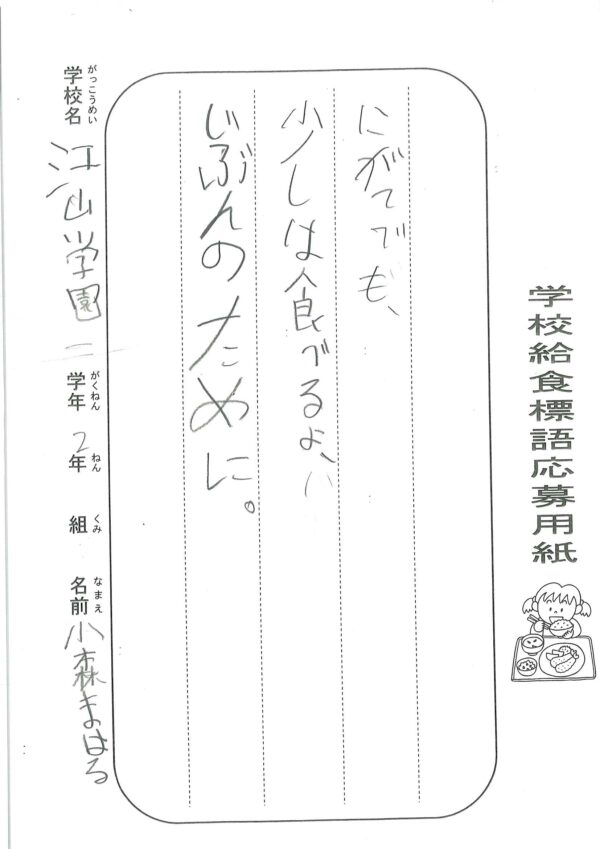 学校給食標語応募用紙
にがてでも、
少しは食べるよ、
じぶんのために。
学校名 江仙学園 学年 2年 組 名前 小森まはる
がっこうめい がくねん ねん くみ なまえ